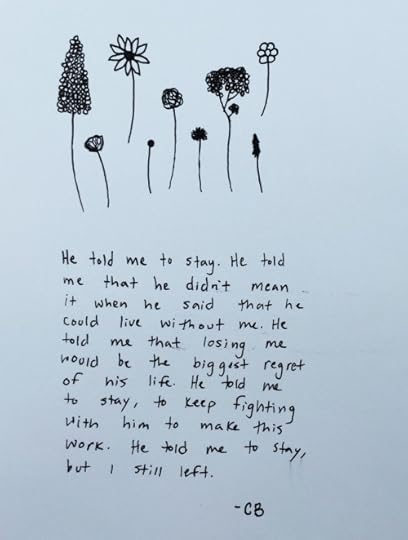 He told me to stay. He told
me that he didn't mean
it when he said that he
could live without me. He
told me that losing me
would be the biggest regret
of his life. He told me
to stay, to keep fighting
with him to make this
work. He told me to stay,
but I still left.
-CB